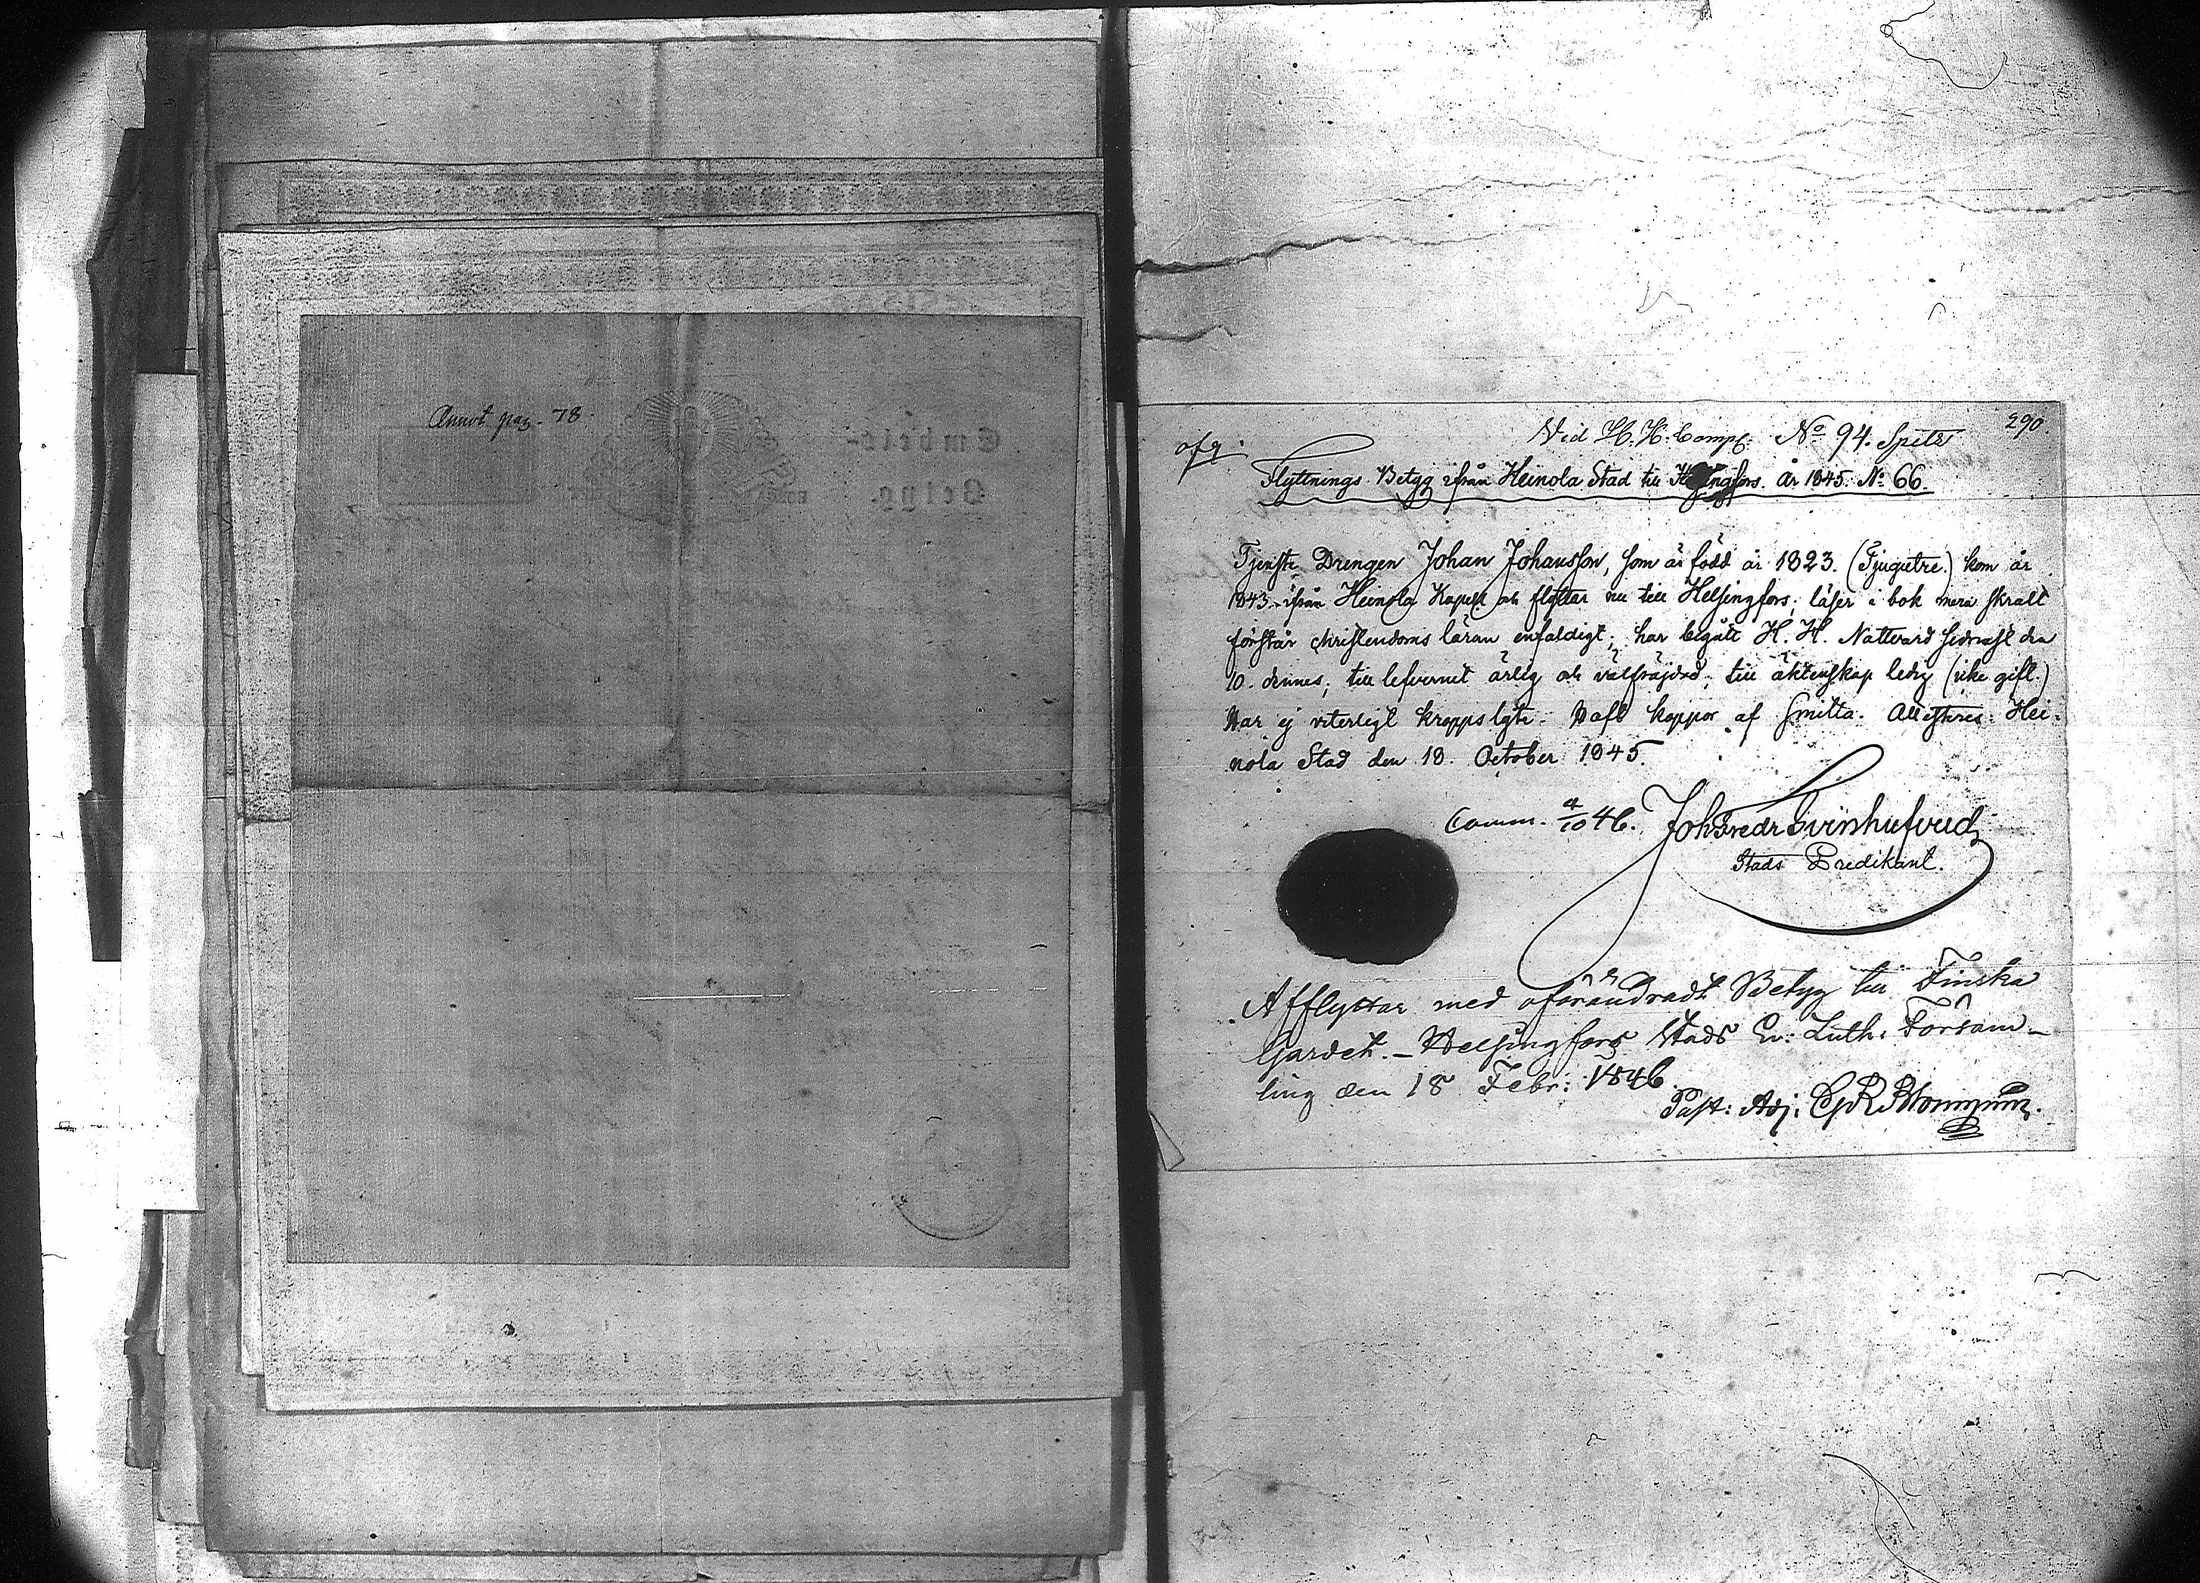 Annot pag. 78
290.
Vid H. H. Comp. No 94. Spitz
afg.
Flyttnings Betyg ifrån Heinola Stad till Helsingfors. år 1845. No 66.
Tjenste Drengen Johan Johansson, som är född år 1823. (Tjugutre.) kom år
1843. ifrån Heinola Kapell och flyttar nu till Helsingfors; läser i bok mera skralt
förstår christendoms läran enfaldigt; har begått H. H. Nattvard sednast den
10. dennes; till lefvernet ärlig och välfräjdad; till äktenskap ledig (icke gift.)
Har ej veterligt kroppslyte. Haft koppor af smitta. Attesteras: Hei-
nola Stad den 18. October 1845.
Comm. 4/10 46. Joh Fredr Svinhufvud
Stads Predikant.
Afflyttar med oförändradt Betyg till Finska
Gardet. - Helsingfors Stads Ev: Luth: Försam-
ling den 18 Febr: 1846.
Past: Adj: